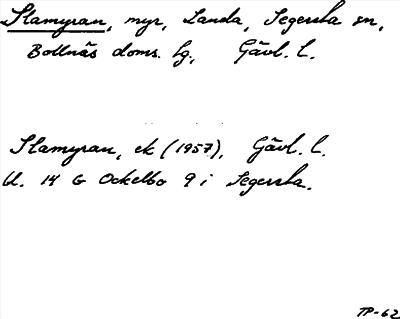 Slamyran, myr, Landa, Segersta sn,
Bollnäs doms. hg, Gävl. l.
Slamyran, ek (1957), Gävl. l.
Bl. 14 G Ockelbo 9 i Segersta.
TP-62